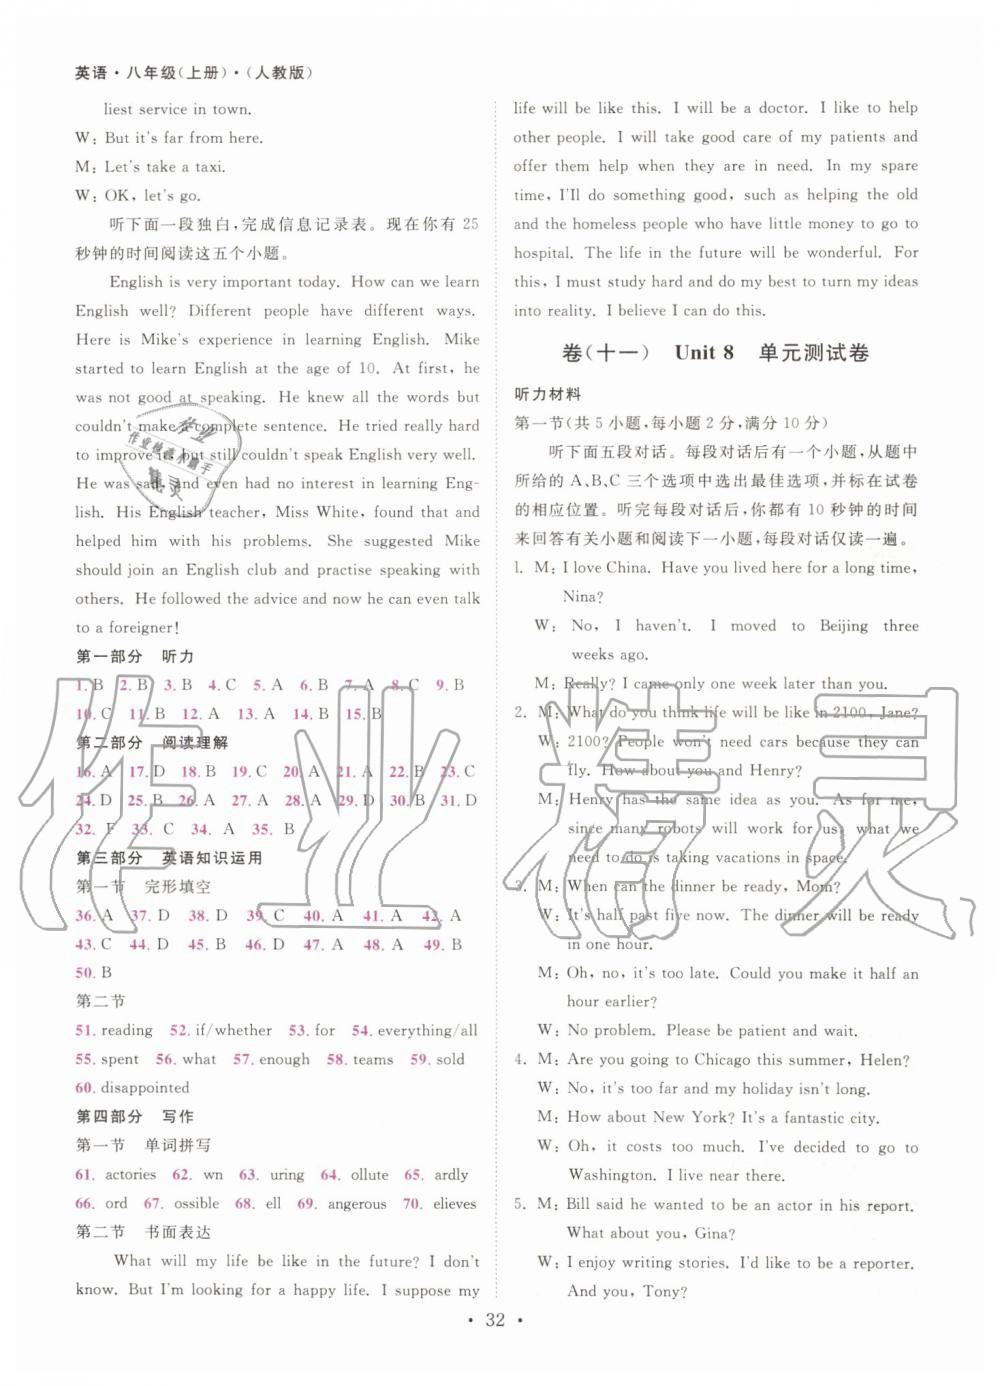 英语·八年级(上册)·(人教版)
liest service in town.
W: But it's far from here.
M: Let's take a taxi.
W: OK, let's go.
听下面一段独白,完成信息记录表。现在你有 25
秒钟的时间阅读这五个小题。
English is very important today. How can we learn
English well? Different people have different ways.
Here is Mike's experience in learning English. Mike
started to learn English at the age of 10. At first, he
was not good at speaking. He knew all the words but
couldn't make a complete sentence. He tried really hard
to improve it, but still couldn't speak English very well.
He was sad, and even had no interest in learning Eng-
lish. His English teacher, Miss White, found that and
helped him with his problems. She suggested Mike
should join an English club and practise speaking with
others. He followed the advice and now he can even talk
to a foreigner!
第一部分 听力
1. B 2. B 3. B 4. C 5. A 6. B 7. A 8. C 9. B
10. C 11. B 12. A 13. A 14. B 15. B
第二部分 阅读理解
16. A 17. D 18. B 19. C 20. A 21. A 22. B 23. C
24. D 25. B 26. A 27. A 28. A 29. D 30. B 31. D
32. F 33. C 34. A 35. B
第三部分 英语知识运用
第一节 完形填空
36. A 37. D 38. D 39. C 40. A 41. A 42. A
43. C 44. D 45. D 46. B 47. A 48. A 49. B
50. B
第二节
51. reading 52. if/whether 53. for 54. everything/all
55. spent 56. what 57. enough 58. teams 59. sold
60. disappointed
第四部分 写作
第一节 单词拼写
61. actories 62. wn 63. uring 64. ollute 65. ardly
66. ord 67. ossible 68. ell 69. angerous 70. elieves
第二节 书面表达
What will my life be like in the future? I don't
know. But I'm looking for a happy life. I suppose my
life will be like this. I will be a doctor. I like to help
other people. I will take good care of my patients and
offer them help when they are in need. In my spare
time, I'll do something good, such as helping the old
and the homeless people who have little money to go to
hospital. The life in the future will be wonderful. For
this, I must study hard and do my best to turn my ideas
into reality. I believe I can do this.
卷(十一) Unit 8 单元测试卷
听力材料
第一节(共 5 小题,每小题 2 分,满分 10 分)
听下面五段对话。每段对话后有一个小题,从题中
所给的 A、B、C 三个选项中选出最佳选项,并标在试卷
的相应位置。听完每段对话后,你都有 10 秒钟的时间
来回答有关小题和阅读下一小题,每段对话仅读一遍。
1. M: I love China. Have you lived here for a long time,
Nina?
W: No, I haven't. I moved to Beijing three
weeks ago.
M: Really? I came only one week later than you.
2. M: What do you think life will be like in 2100, Jane?
W: 2100? People won't need cars because they can
fly. How about you and Henry?
M: Henry has the same idea as you. As for me,
since many robots will work for us, what we
need to do is taking vacations in space.
3. M: When can the dinner be ready, Mom?
W: It's half past five now. The dinner will be ready
in one hour.
M: Oh, no, it's too late. Could you make it half an
hour earlier?
W: No problem. Please be patient and wait.
4. M: Are you going to Chicago this summer, Helen?
W: No, it's too far and my holiday isn't long.
M: How about New York? It's a fantastic city.
W: Oh, it costs too much. I've decided to go to
Washington. I live near there.
5. M: Bill said he wanted to be an actor in his report.
What about you, Gina?
W: I enjoy writing stories. I'd like to be a reporter.
And you, Tony?
• 32 •
作业精灵